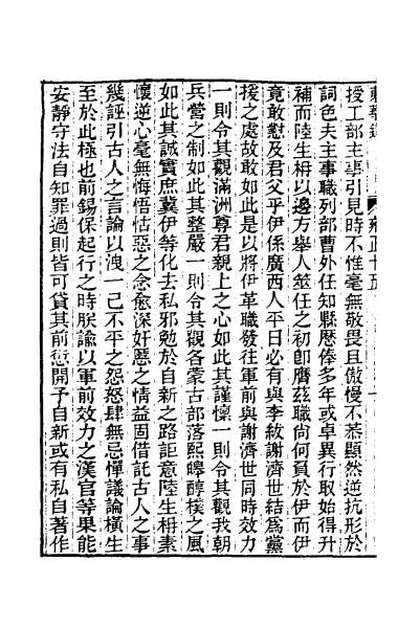 東華錄 雍正十五
授工部主事引見時不惟毫無敬畏且傲慢不恭顯然逆抗形於
詞色夫主事職列部曹外任知縣歷俸多年或卓異行取始得升
補而陸生枬以邊方舉人筮任之初卽膺玆職尚何負於伊而伊
竟敢懟及君父乎伊係廣西人平日必有與李紱謝濟世結爲黨
援之處故敢如此是以將伊革職發往軍前與謝濟世同時效力
一則令其觀滿洲尊君親上之心如此其謹懍一則令其觀我朝
兵營之制如此其整嚴一則令其觀各蒙古部落熙皞醇樸之風
如此其誠實庶冀伊等化去私邪勉於自新之路詎意陸生枬素
懷逆心毫無悔悟怙惡之念愈深奸慝之情益固借託古人之事
幾誣引古人之言論以洩一己不平之怨怒肆無忌憚議論橫生
至於此極也前錫保起行之時朕諭以軍前效力之漢官等果能
安靜守法自知罪過則皆可貸其前愆開予自新或有私自著作